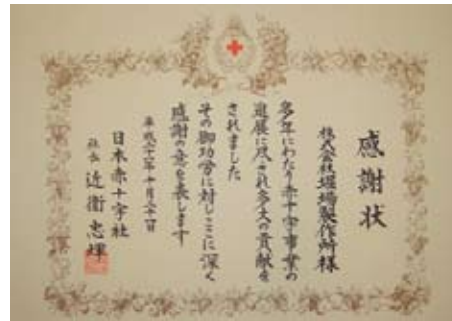 感謝状
株式会社堀場製作所様
多年にわたり赤十字事業の
進展に尽され多大の貢献を
されました
その御功労に対しここに深く
感謝の意を表します
日本赤十字社
社長 近衞忠煇